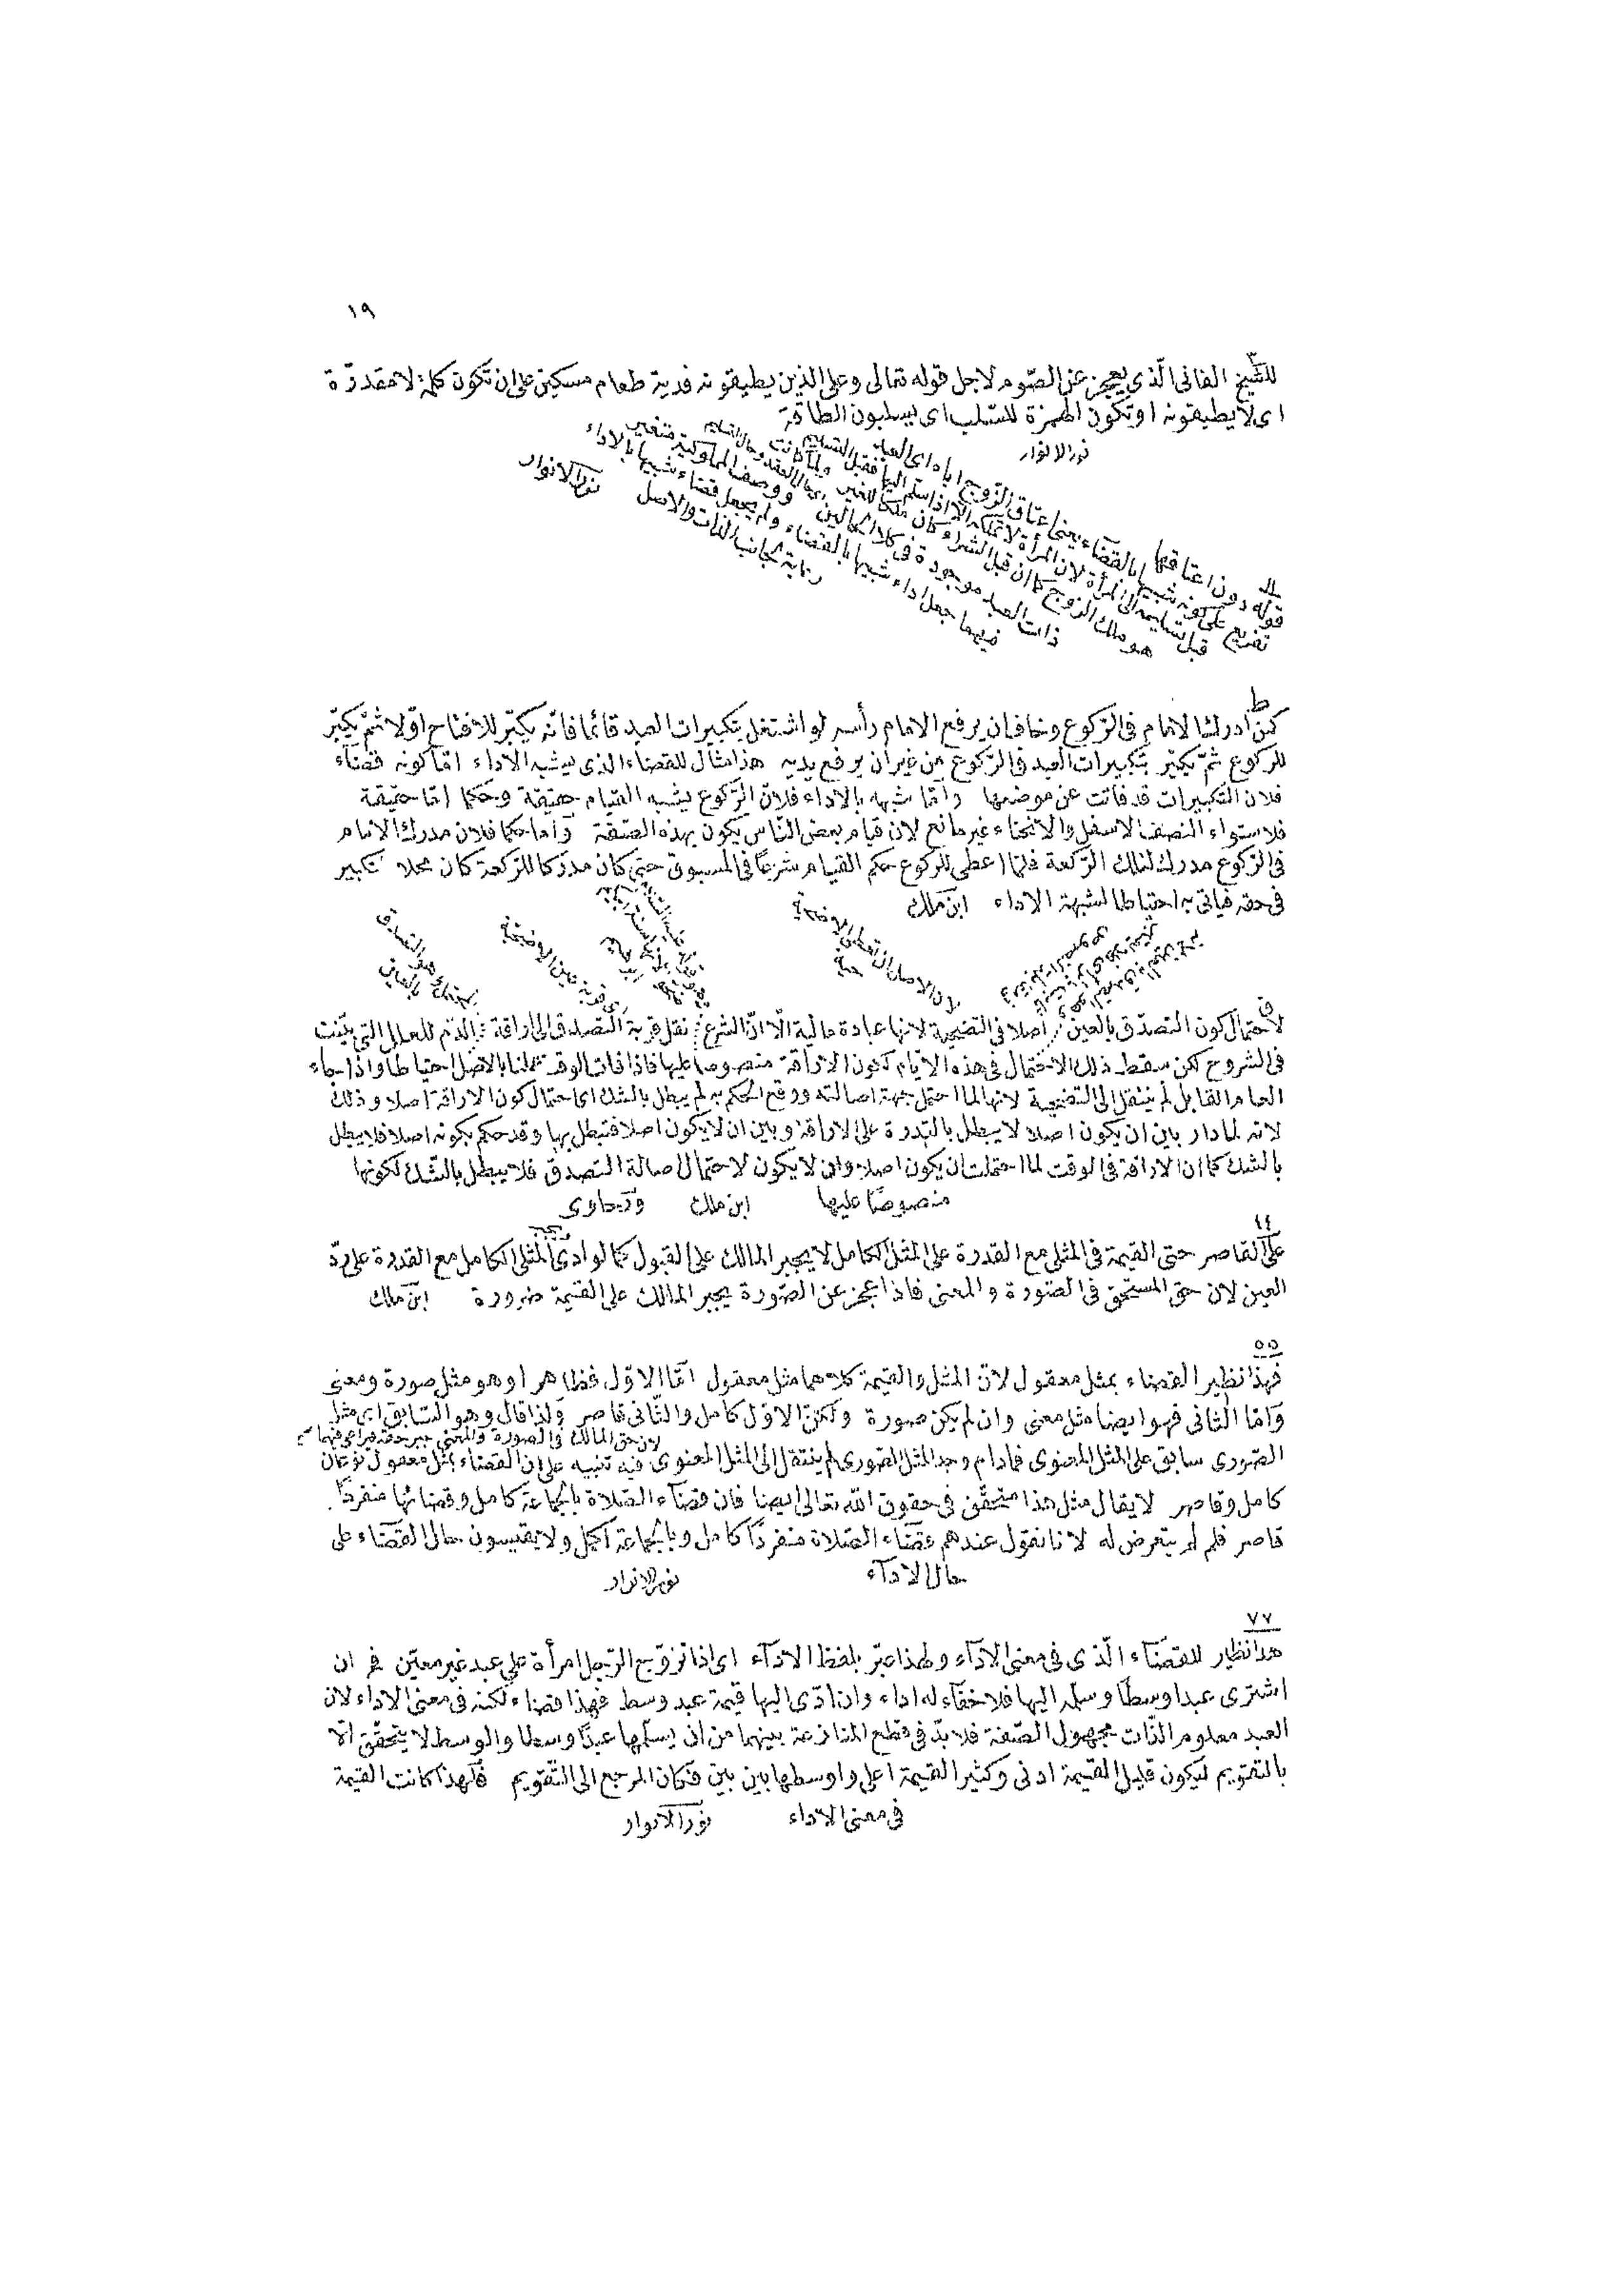 ١٩
للشيخ الفانى الّذى يعجز عن الصّوم لاجل قوله تعالى وعلى الذين يطيقونه فدية طعام مسكين على ان تكون كلمة لا مقدرّة
اى لا يطيقونه او تكون الهمزة للسّلب اى يسلبون الطاقة
نور الانوار
قوله دون اعتاقها
تفريع على كونه شبيها بالقضاء يعنى اعتاق الزّوج اياه اى العبد
قبل تسليمه الى المرأة لان المرأة لا تملكه الا اذا سلم اليها فقبل التسليم
هو ملك الزوج كما ان قبل الشراء كان ملكا للغير ولما كانت
ذات العبد موجودة فى كلا الحالين ووصف المملوكية متغير
فيهما جعل اداء شبيها بالقضاء ولم يجعل قضاء شبيها بالاداء
رعاية لجانب الذات والاصل نور الانوار
ط
كمن ادرك الامام فى الرّكوع وخاف ان يرفع الامام رأسه لو اشتغل بتكبيرات العيد قائما فانّه يكبّر للافتتاح اوّلا ثمّ يكبّر
للركوع ثمّ يكبّر بتكبيرات العيد فى الرّكوع من غير ان يرفع يديه هذا مثال للقضاء الذى يشبه الاداء امّا كونه قضاء
فلان التكبيرات قد فاتت عن موضعها وامّا شبهه بالاداء فلانّ الرّكوع يشبه القيام حقيقة وحكما امّا حقيقة
فلاستواء النصف الاسفل والانحناء غير مانع لان قيام بعض النّاس يكون بهذه الصّفة وامّا حكما فلان مدرك الامام
فى الرّكوع مدرك لتلك الرّكعة فلمّا اعطى للركوع حكم القيام شرعًا فى المسبوق حتى كان مدركا للرّكعة كان محلا لتكبير
فى حقه فيأتى به احتياطا لشبهة الاداء ابن ملك
لاحتمال كون التصدّق بالعين اصلا فى التضحية لانها عبادة مالية الّا انّ الشرع نقل قربة التّصدق الى اراقة الدّم للعلل التى بيّنت
فى الشروح لكن سقط ذلك الاحتمال فى هذه الايّام لكون الاراقة منصوصا عليها فاذا فات الوقت عملنا بالاصل احتياطا واذا جاء
العام القابل لم ينتقل الى التضحية لانها لما احتمل جهة اصالته ووقع الحكم به لم يبطل بالشك اى احتمال كون الاراقة اصلا وذلك
لانه لما دار بين ان يكون اصلا لا يبطل بالقدرة على الاراقة وبين ان لا يكون اصلا فتبطل بها وقد حكم بكونه اصلا فلا يبطل
بالشك كما ان الاراقة فى الوقت لما احتملت ان يكون اصلا وان لا يكون لاحتمال اصالة التصدق فلا يبطل بالشّك لكونها
منصوصًا عليها ابن ملك
٤٤
على القاصر حتى القيمة فى المثلى مع القدرة على المثل الكامل لا يجبر المالك على القبول كما لو ادى المثل الكامل مع القدرة على ردّ
العين لان حق المستحق فى الصّورة والمعنى فاذا عجز عن الصّورة يجبر المالك على القيمة ضرورة ابن ملك
٥٥
فهذا نظير القضاء بمثل معقول لانّ المثل والقيمة كلاهما مثل معقول امّا الاوّل فظاهر او هو مثل صورة ومعنى
وامّا الثّانى فهو ايضا مثل معنى وان لم يكن صورة ولكنّ الاوّل كامل والثّانى قاصر ولذا قال وهو السّابق اى مثل
لان حق المالك فى الصورة والمعنى
الصّورى سابق على المثل المعنوى فما دام وجد المثل الصّورى لم ينتقل الى المثل المعنوى فيه تنبيه على ان القضاء بمثل معقول نوعان
كامل وقاصر لا يقال مثل هذا متحقّق فى حقوق الله تعالى ايضا فان قضاء الصّلاة بالجماعة كامل وقضائها منفردًا
قاصر فلم لم يتعرض له لانا نقول عندهم قضاء الصّلاة منفردًا كامل وبالجماعة اكمل ولا يقيسون حال القضاء على
حال الاداء نور الانوار
٧٧
هذا نظير للقضاء الّذى فى معنى الاداء ولهذا عبّر بلفظ الاداء اى اذا تزوّج الرّجل امرأة على عبد غير معيّن فح ان
اشترى عبدا وسطًا وسلّمه اليها فلا خفاء له اداء وان ادّى اليها قيمة عبد وسط فهذا قضاء لكنه فى معنى الاداء لان
العبد معلوم الذّات مجهول الصّفة فلا بدّ فى قطع المنازعة بينهما من ان يسلّمها عبدًا وسطا والوسط لا يتحقّق الّا
بالتقويم ليكون قليل القيمة ادنى وكثير القيمة اعلى واوسطها بين بين فكان المرجع الى التّقويم فلهذا كانت القيمة
فى معنى الاداء نور الانوار